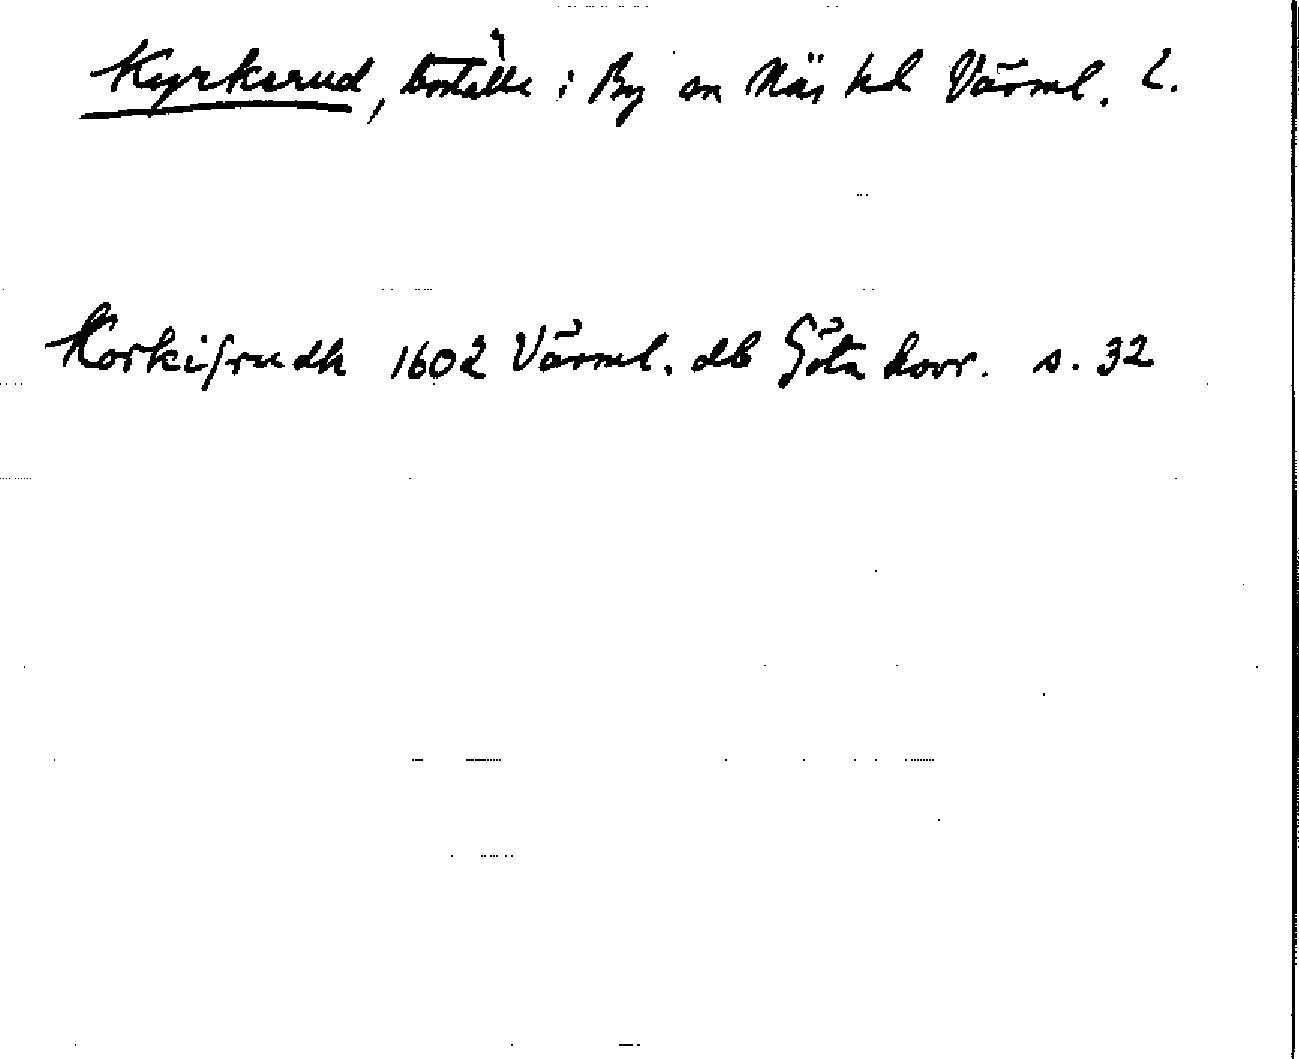 Kyrkerud, boställe i By sn Näs hd Värml. l.
Korkisrudh 1602 Värml. db Göta hovr. s. 32